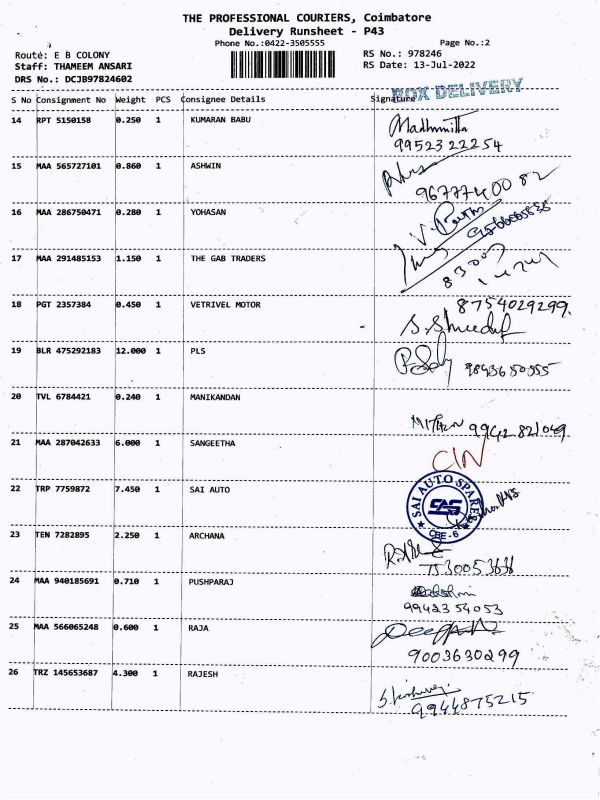 THE PROFESSIONAL COURIERS, Coimbatore
Delivery Runsheet - P43
Phone No.:0422-3505555
Page No.:2
Route: E B COLONY
Staff: THAMEEM ANSARI
DRS No.: DCJB97824602
RS No.: 978246
RS Date: 13-Jul-2022
BOX DELIVERY
S No Consignment No Weight PCS Consignee Details Signature
14 RPT 5150158 0.250 1 KUMARAN BABU Madhumitha
99523 22254
15 MAA 565727101 0.860 1 ASHWIN
9677740082
16 MAA 286750471 0.280 1 YOHASAN
17 MAA 291485153 1.150 1 THE GAB TRADERS
18 PGT 2357384 0.450 1 VETRIVEL MOTOR 8754029299.
19 BLR 475292183 12.000 1 PLS 98436 50555
20 TVL 6784421 0.240 1 MANIKANDAN
MITHUN 9942 821049.
21 MAA 287042633 6.000 1 SANGEETHA
22 TRP 7759872 7.450 1 SAI AUTO
SAI AUTO SPARES
SAS
CBE-6
23 TEN 7282895 2.250 1 ARCHANA
7530053636
24 MAA 940185691 0.710 1 PUSHPARAJ
99423 54053
25 MAA 566065248 0.600 1 RAJA
9003630299
26 TRZ 145653687 4.300 1 RAJESH
9944875215